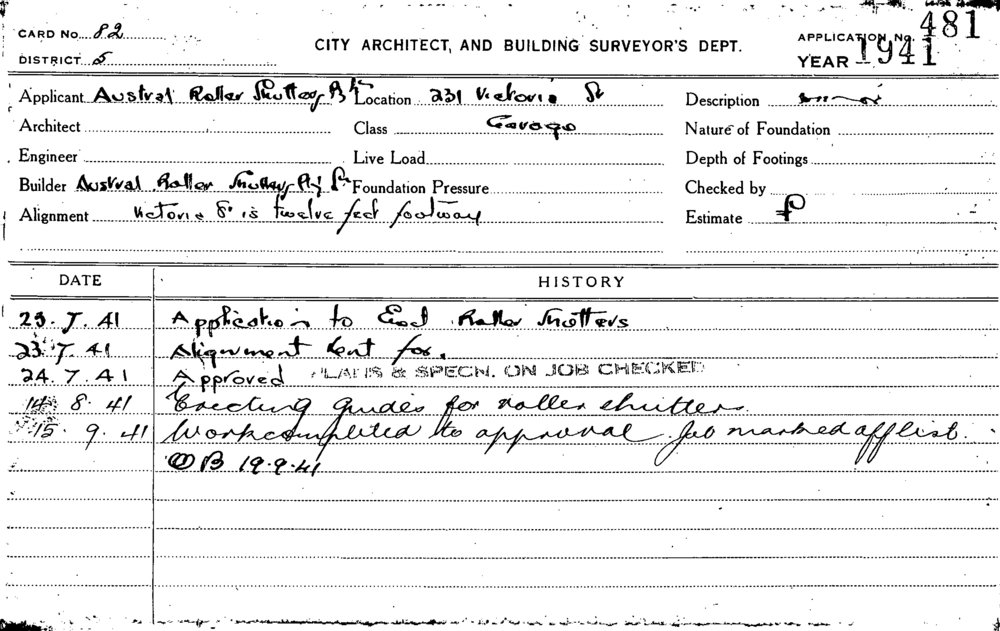 CARD No. 82
CITY ARCHITECT, AND BUILDING SURVEYOR'S DEPT.
APPLICATION No. 481
DISTRICT 5
YEAR 1941
Applicant Austral Roller Shutters Pty Location 231 Victoria St Description
Architect Class Garage Nature of Foundation
Engineer Live Load Depth of Footings
Builder Austral Roller Shutters Pty Foundation Pressure Checked by
Alignment Victoria St is twelve feet footway Estimate £
DATE HISTORY
23. 7. 41 Application to Erect Roller Shutters
23. 7. 41 Alignment sent for.
24. 7. 41 Approved PLANS & SPECN. ON JOB CHECKED
14 8. 41 Erecting guides for roller shutters.
15. 9. 41 Work completed to approval. Job marked off list.
OB 19.9.41